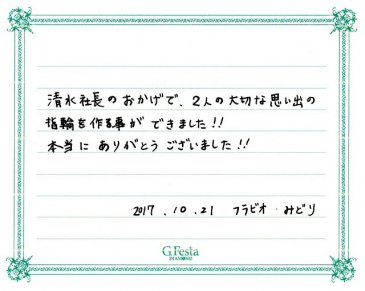 清水社長のおかげで、2人の大切な思い出の
指輪を作る事ができました!!
本当にありがとうございました!!
2017.10.21 フラビオ・みどり
G.Festa
DIAMOND